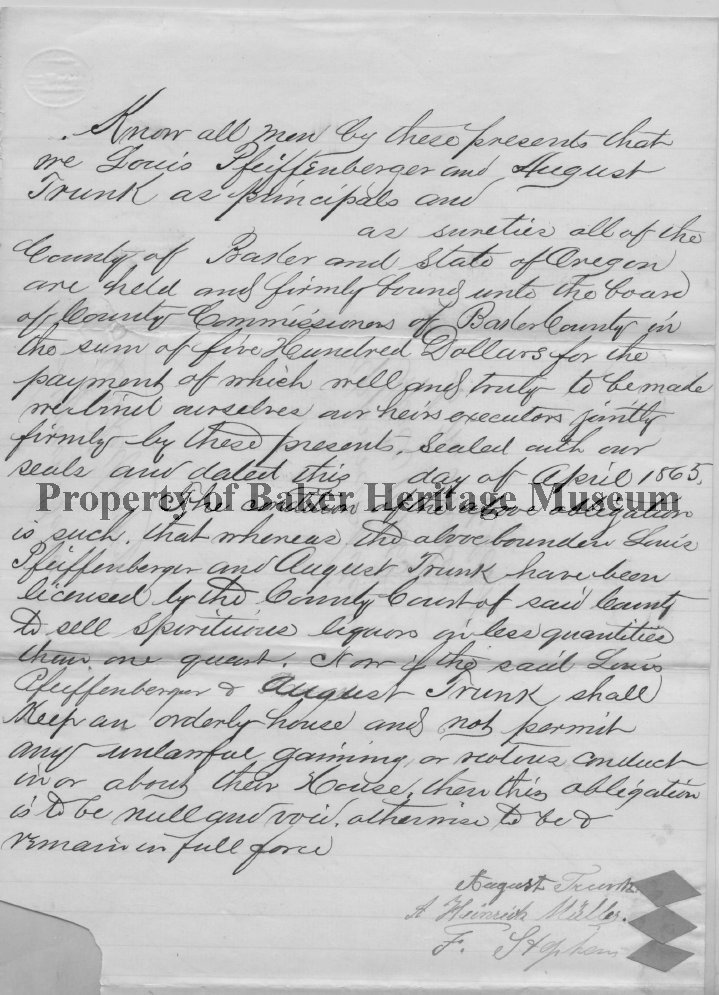 Know all men by these presents that
we Louis Pfeiffenberger and August
Trunk as principals and
as sureties all of the
County of Baker and State of Oregon
are held and firmly bound unto the board
of County Commissioners of Baker County in
the sum of five Hundred Dollars for the
payment of which well and truly to be made
we bind ourselves our heirs executors jointly
firmly by these presents. Sealed with our
seals and dated this day of April 1865.
Property of Baker Heritage Museum
The condition of the above obligation
is such, that whereas the above bounden Louis
Pfeiffenberger and August Trunk have been
licensed by the County Court of said County
to sell Spirituous liquors in less quantities
than one quart. Now if the said Louis
Pfeiffenberger & August Trunk shall
Keep an orderly house and not permit
any unlawful gaming, or riotous conduct
in or about their House, then this obligation
is to be null and void, otherwise to be &
remain in full force
August Trunk
A Heinrich Müller.
F. Stephens